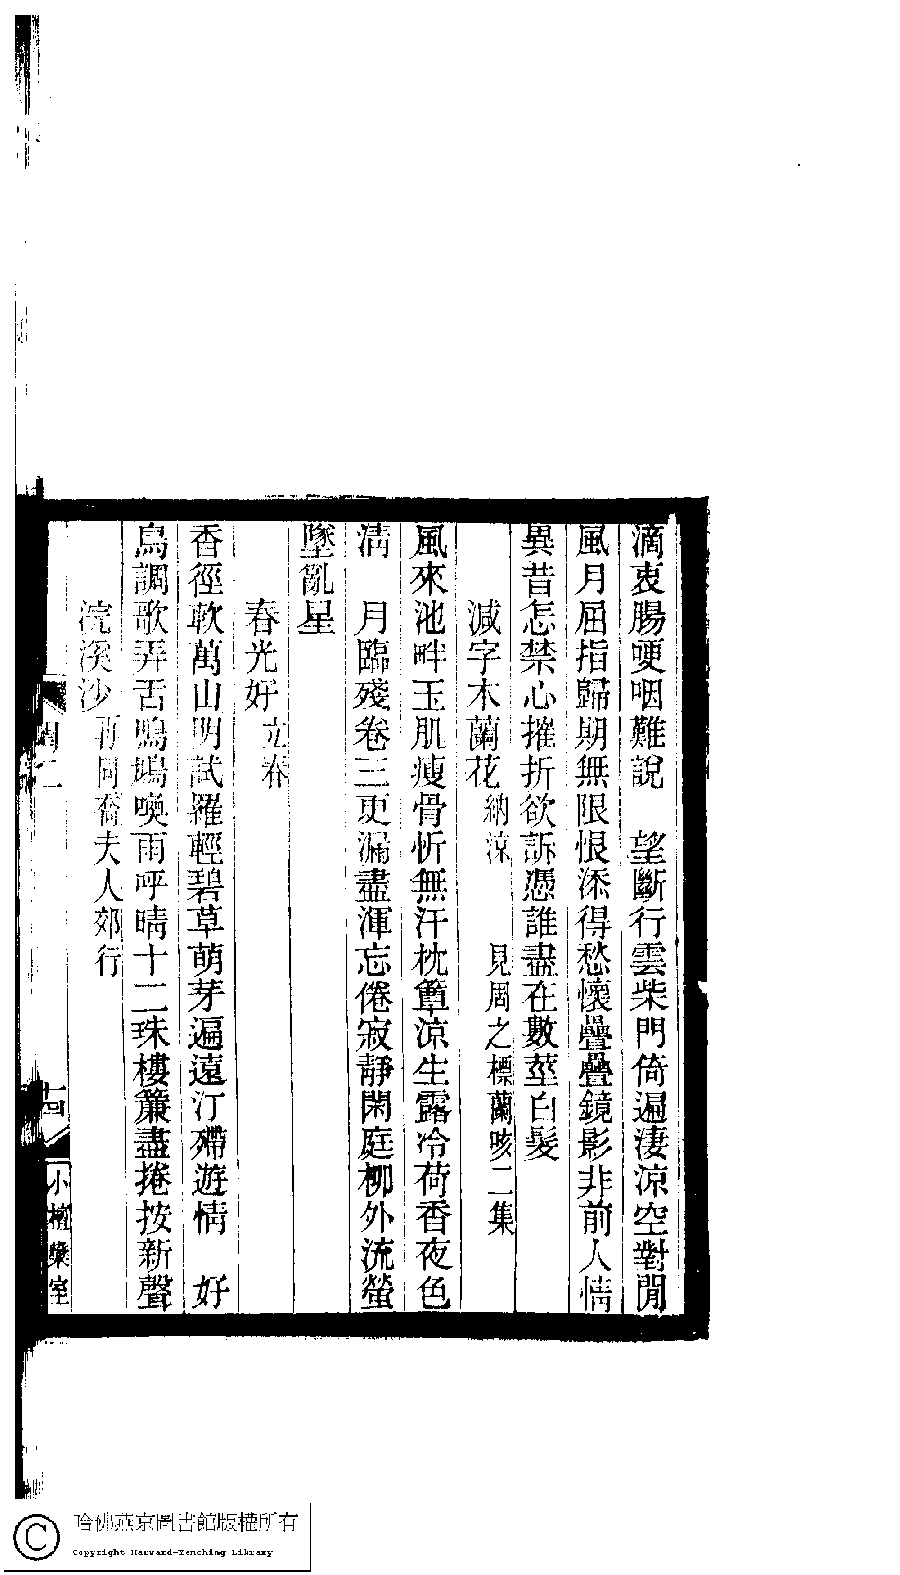 滴衷腸哽咽難說　望斷行雲柴門倚遍淒涼空對閒
風月屈指歸期無限恨添得愁懷疊疊鏡影非前人情
異昔怎禁心摧折欲訴憑誰盡在數莖白髮
減字木蘭花 納涼　見周之標蘭咳二集
風來池畔玉肌瘦骨忻無汗枕簟涼生露冷荷香夜色
清　月臨殘卷三更漏盡渾忘倦寂靜閑庭柳外流螢
墜亂星
春光好 立春
香徑軟萬山明試羅輕碧草萌芽遍遠汀殢遊情　好
鳥調歌弄舌鳴鳩喚雨呼晴十二珠樓簾盡捲按新聲
浣溪沙 再同喬夫人郊行
十四
小檀欒室
哈佛燕京圖書館版權所有
Copyright Harvard-Yenching Library